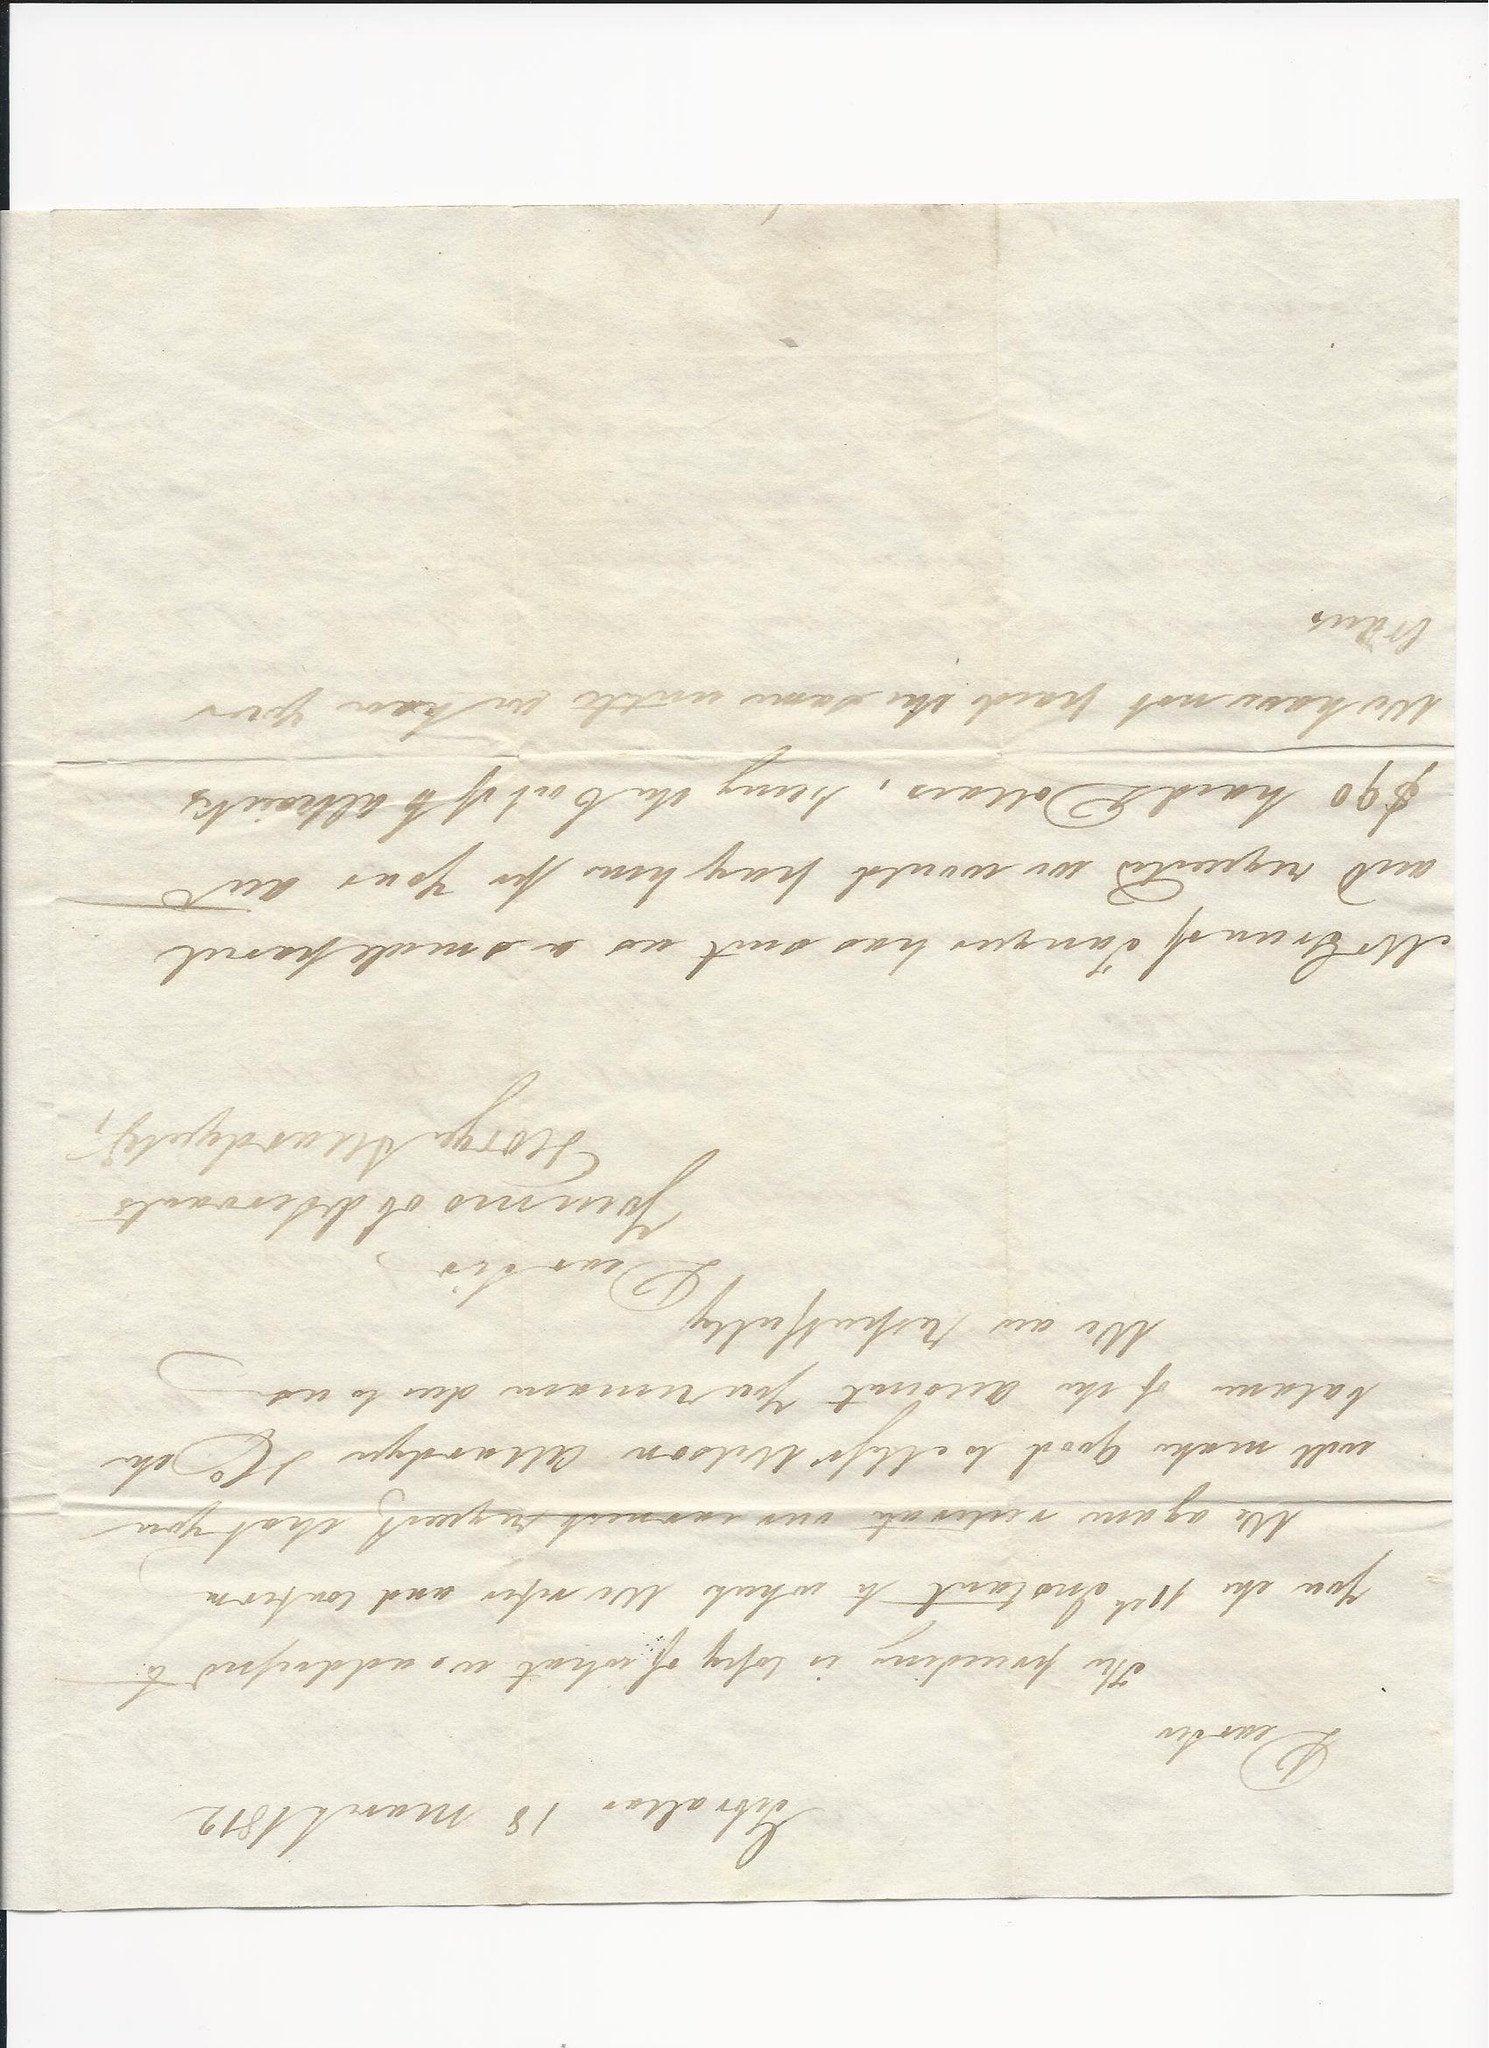 Gibraltar 18 March 1812
Dear Sir
The preceding is Copy of what we addressed to
you the 11th Instant to which We refer and confirm
We again reiterate our earnest request, that you
will make good to Messrs Wilson Allardyce & Co the
balance of the Account you remain due to us
We are respectfully
Dear Sir,
Your mo ob Servants
George Allardyce &
Mr Green of Tangier has sent us a small parcel
and requested we would pay him for your acct
$90 hard Dollars, being the Cost of
We have not paid the same until we have your
orders